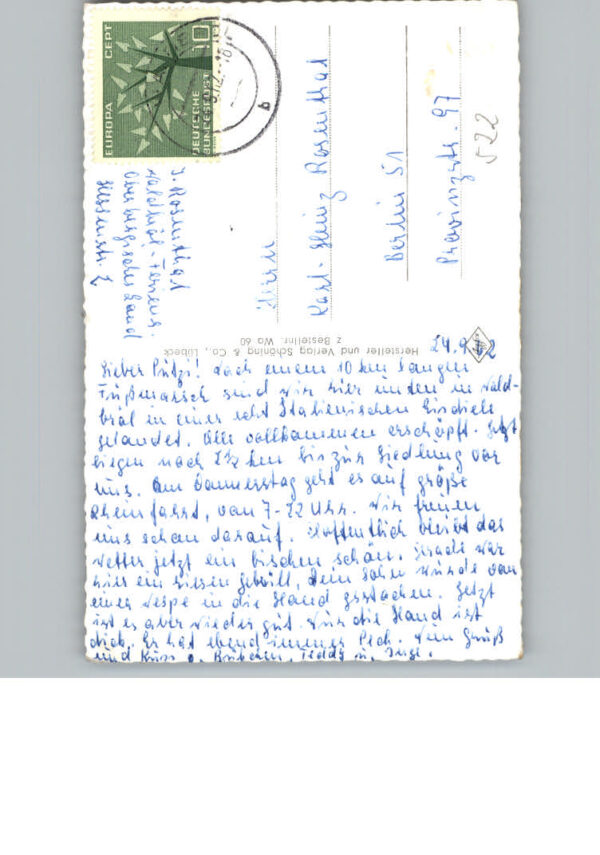 EUROPA CEPT
10
DEUTSCHE
BUNDESPOST
b
J. Rosenthal
Waldbröl-Feriens.
Oberbergisches Land
Herrn
Karl-Heinz Rosenthal
Berlin 51
Provinzstr. 97
522
Hersteller und Verlag Schöning & Co., Lübeck
z Bestellnr. Wa 60
24.9.62
Lieber Putzi! Nach einem 10 km langen
Fußmarsch sind wir hier unten in Wald-
bröl in einer echt Italienischen Eisdiele
gelandet. Alle vollkommen erschöpft. Jetzt
liegen noch 2½ km bis zur Siedlung vor
uns. Am Donnerstag geht es auf große
Rheinfahrt, von 7-22 Uhr. Wir freuen
uns schon darauf. Hoffentlich bleibt das
Wetter jetzt ein bischen schön. Grade war
hier ein riesen gebrüll, Dein Sohn wurde von
einer Wespe in die Hand gestochen. Jetzt
ist es aber wieder gut. Nur die Hand ist
dick. Er hat ebend immer Pech. Nun Gruß
und Kuss Teddy u. Inge.